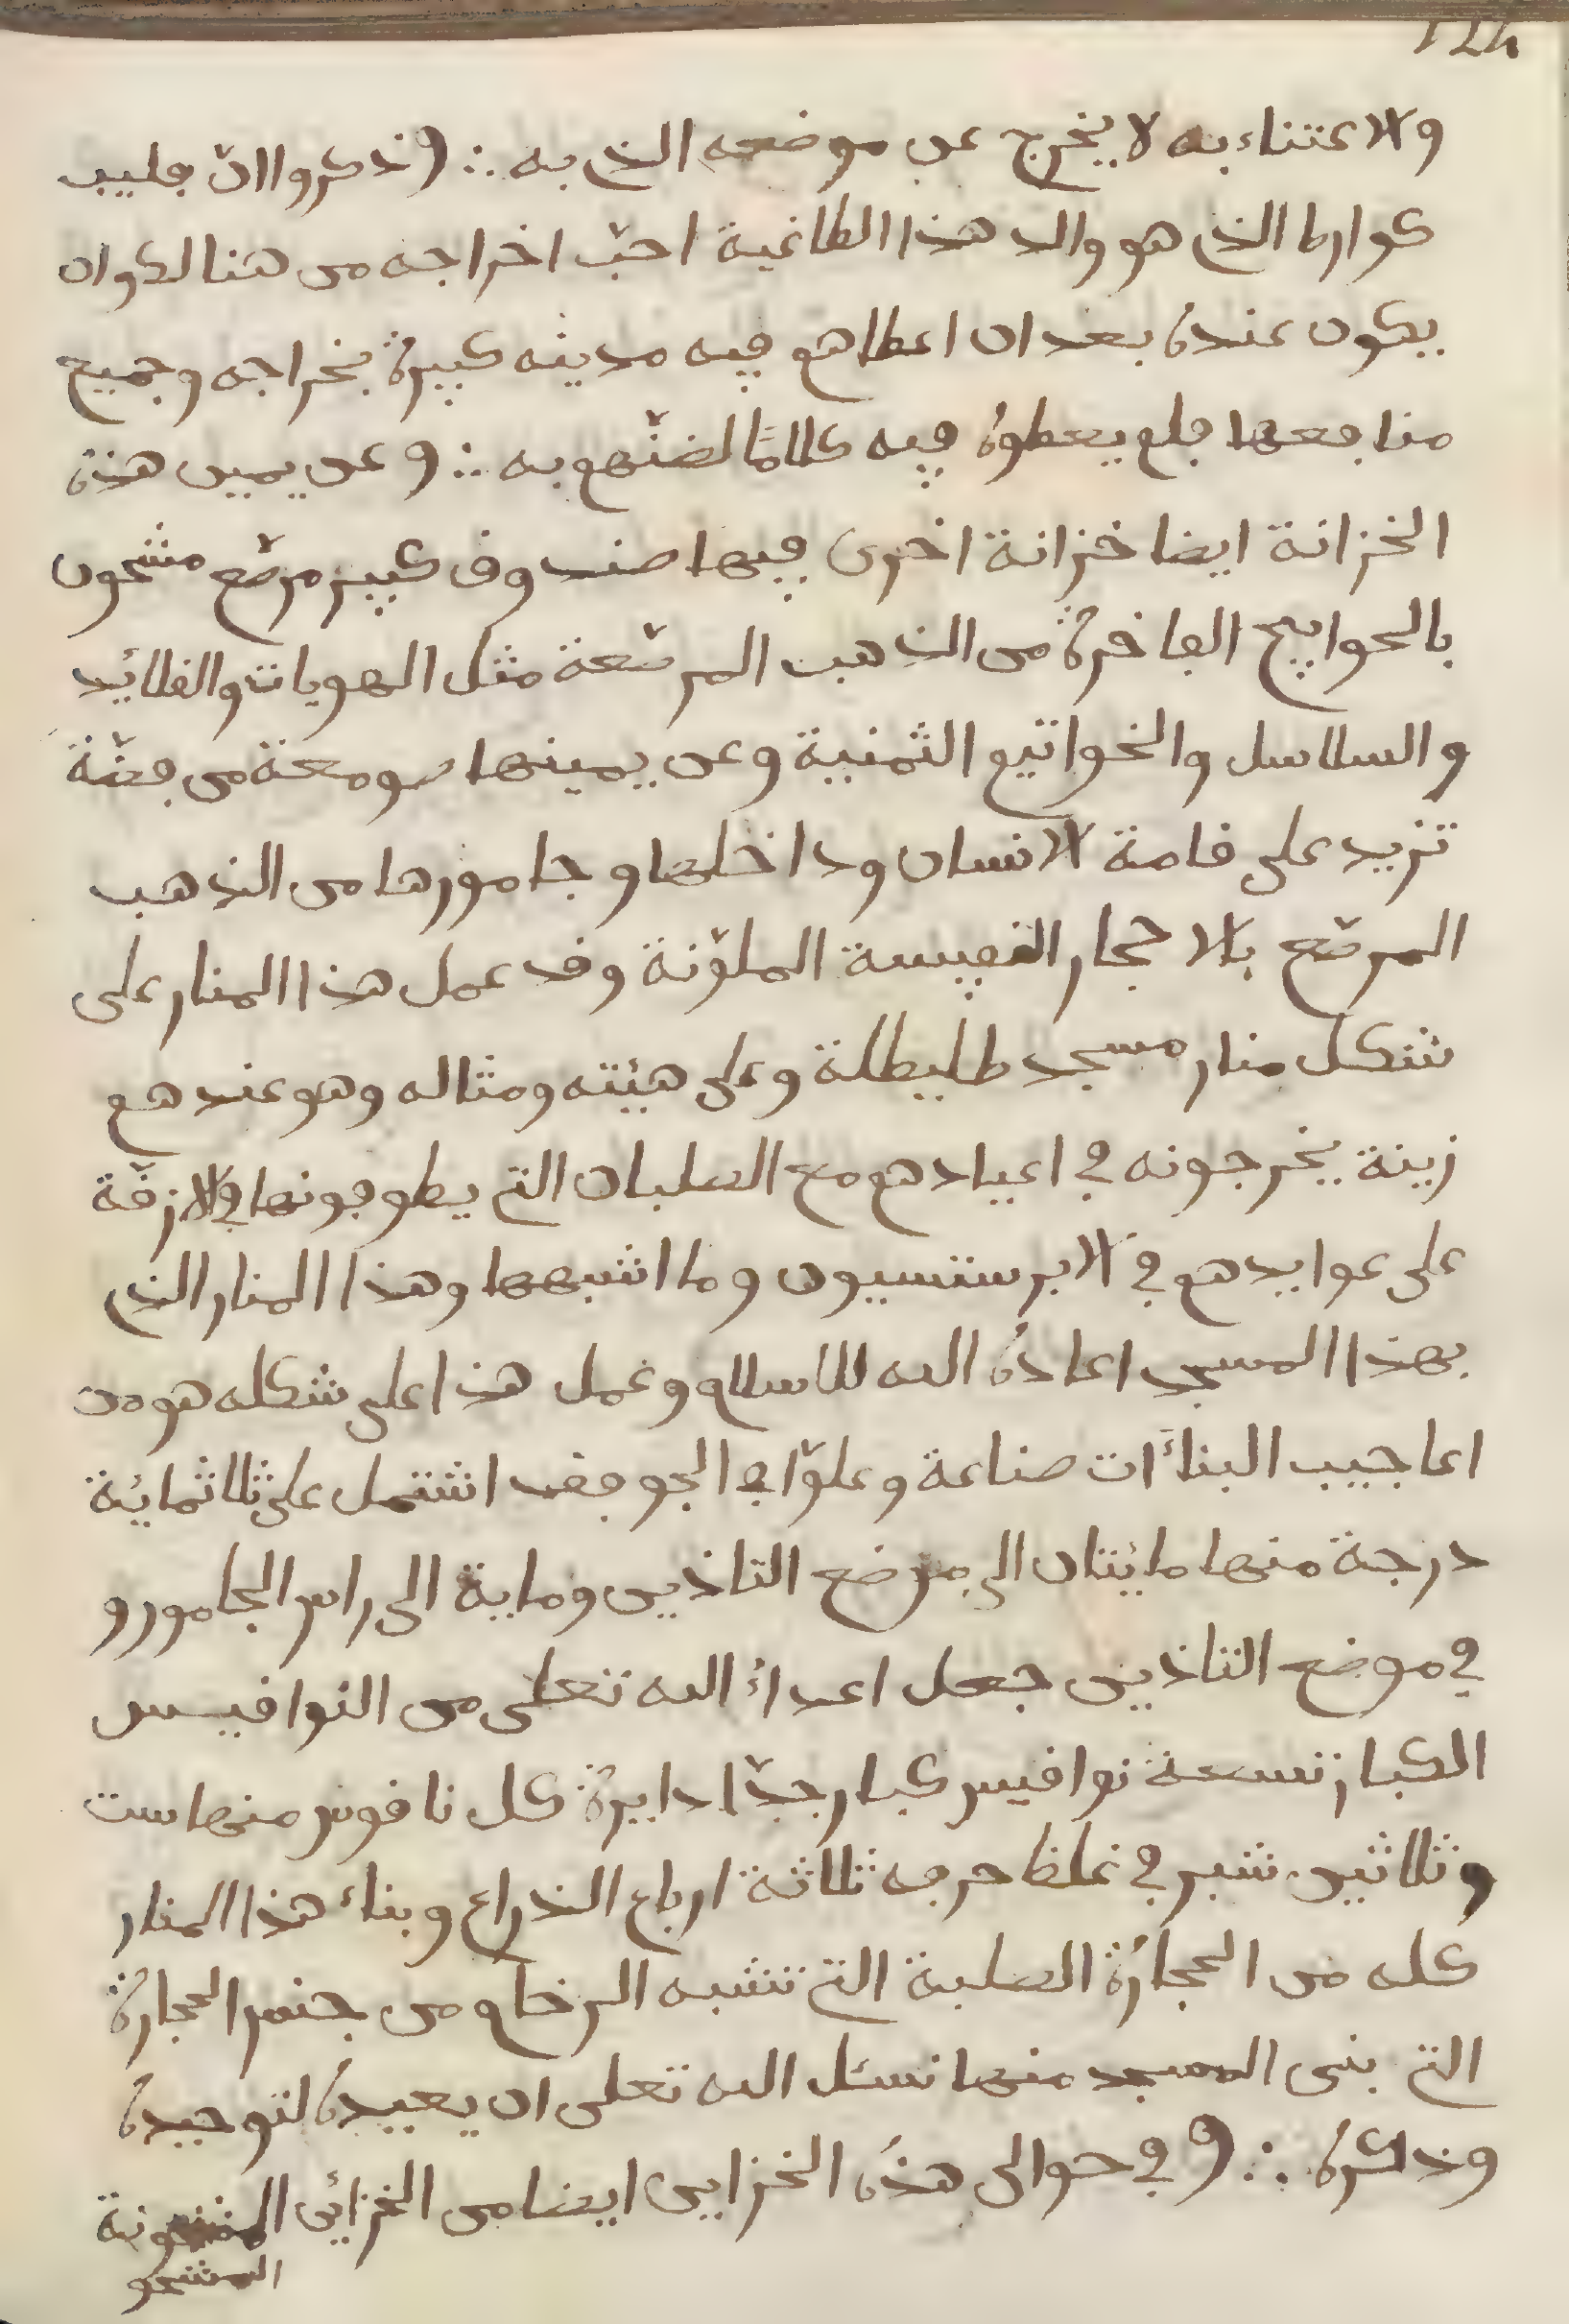 والاعتناء به لا يخرج عن موضعه الذي به ∴ وذكروا ان فليب
كوارط الذي هو والد هذا الطاغية احبّ اخراجه من هنالك وان
يكون عنده بعد ان اعطاهم فيه مدينه كبيرة بخراجه وجميع
منافعها فلم يعطوه فيه كلامًا لضنّهم به ∴ وعن يمين هذه
الخزانة ايضا خزانة اخرى فيها صندوق كبير مرصّع مشحون
بالحوايج الفاخرة من الذهب المرصّعة مثل الهويات والقلائد
والسلاسل والخواتيم الثمنية وعن يمينها صومعة من فضّة
تزيد على قامة الانسان وداخلها وجامورها من الذهب
المرصّع بالاحجار النفيسة الملوّنة وقد عمل هذا المنار على
شكل منار مسجد طليطلة وعلى هيئته ومثاله وهو عندهم
زينة يخرجونه في اعيادهم مع الصلبان التي يطوفونها في الازقّة
على عوايدهم في الابرسنسيون وما اشبهها وهذا المنار الذي
بهذا المسجد اعاده الله للاسلام وعمل هذا على شكله هو من
اعاجيب البناءات صناعة وعلوّا في الجو فقد اشتمل على ثلاثمائة
درجة منها مائتان الى موضع التاذين وماية الى راس الجامور و
في موضع التاذين جعل اعداء الله تعلى من النواقيس
الكبار تسعة نواقيس كبار جدّا دايرة كل ناقوس منها ست
وثلاثين شبر في غلظ حرفه ثلاثة ارباع الذراع وبناء هذا المنار
كله من الحجارة الصلبة التي تشبه الرخام من جنس الحجارة
التي بنى المسجد منها نسئل الله تعلى ان يعيده لتوحيده
وذكره ∴ وفي حوالى هذه الخزاين ايضا من الخزائن المشحونة
المشحو